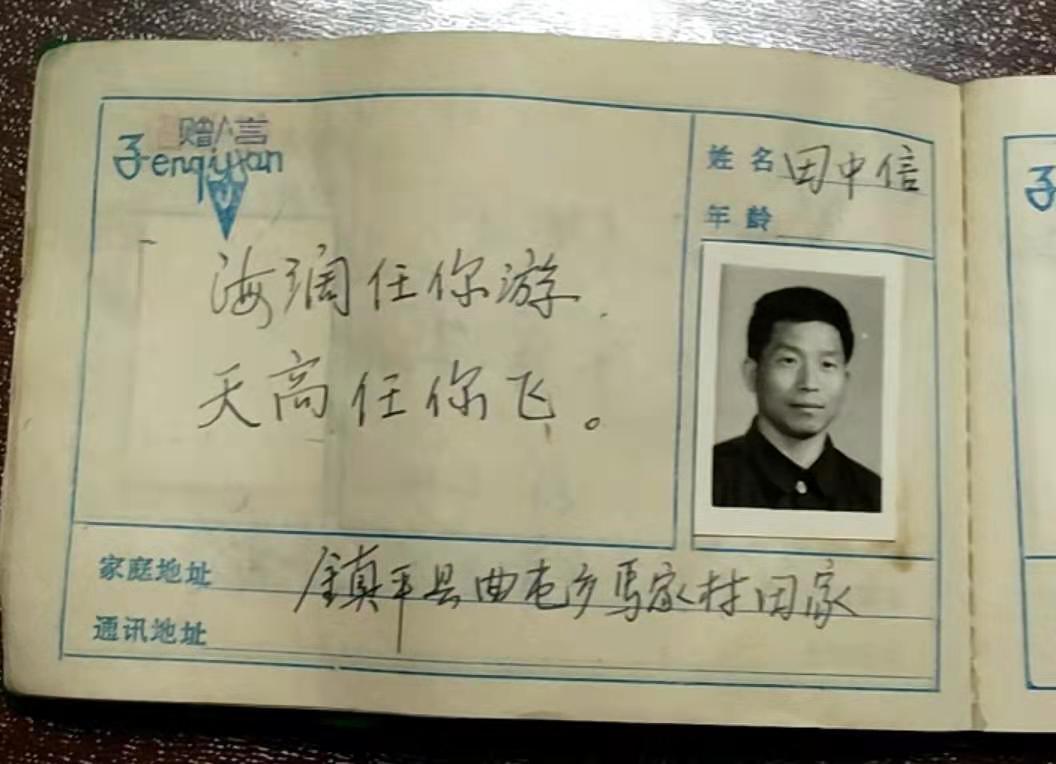 赠言
海阔任你游.
天高任你飞。
姓名 田中信
年龄
家庭地址 镇平县曲屯乡马家村田家
通讯地址